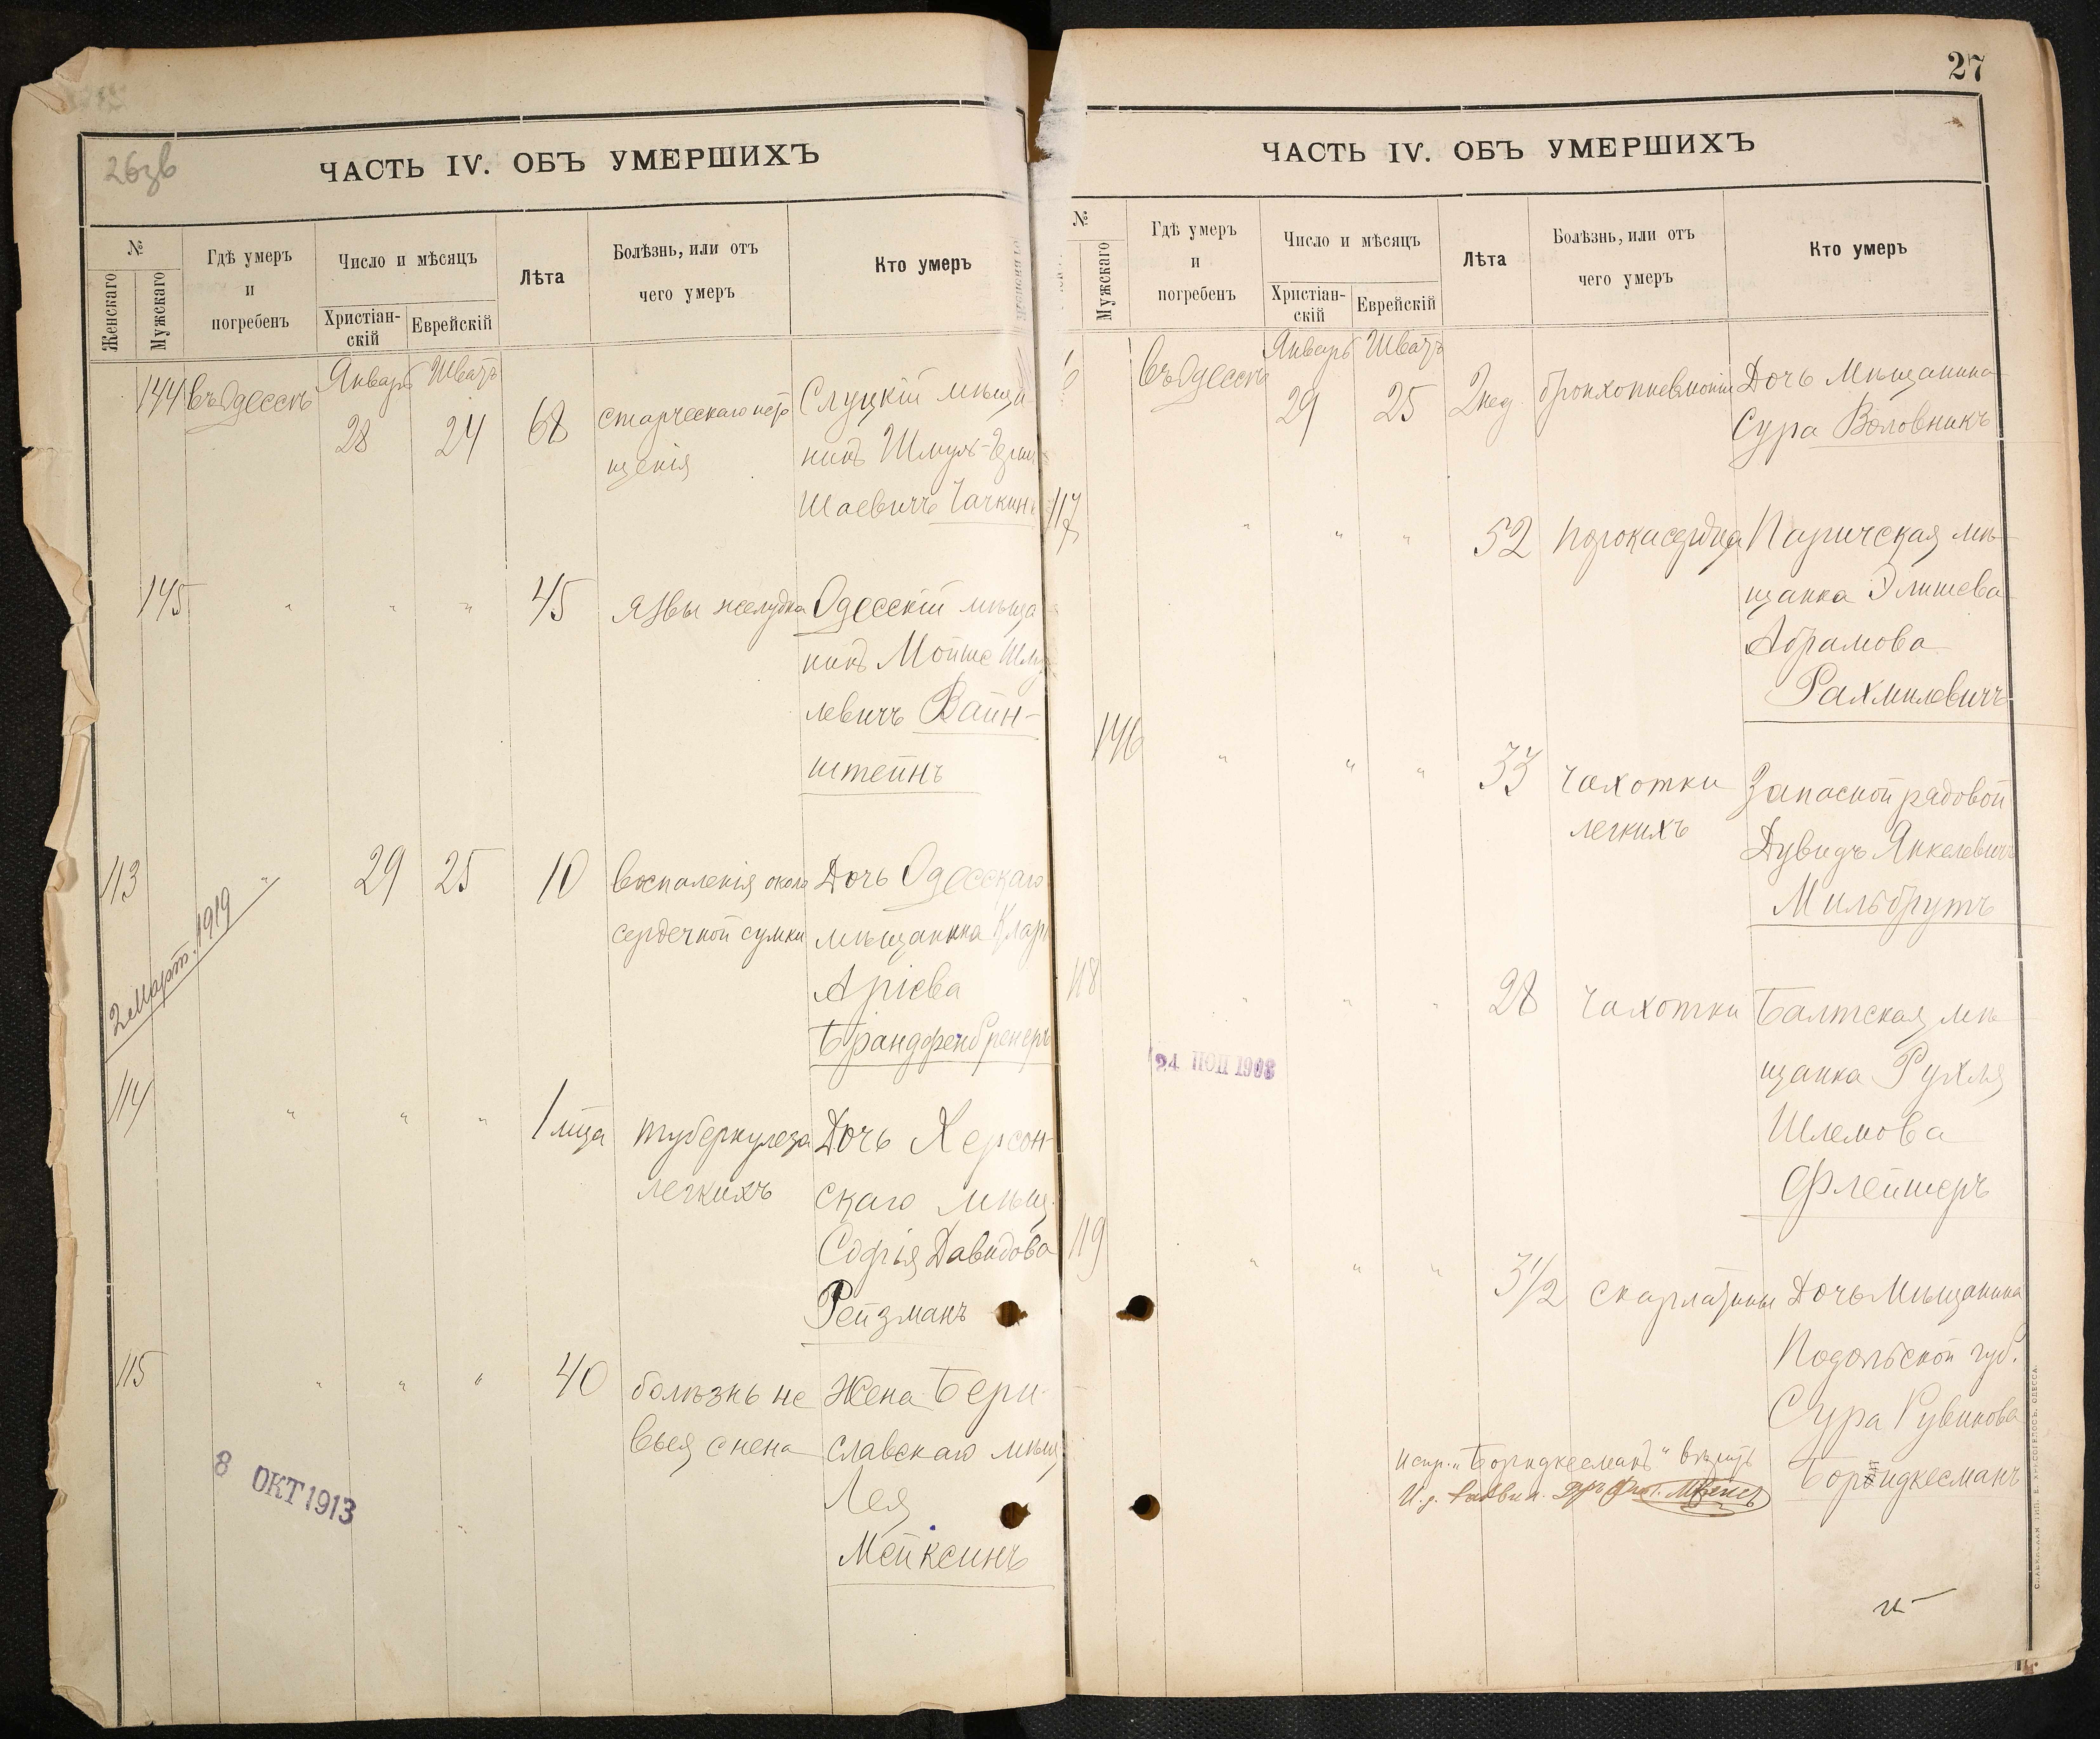 26зв
ЧАСТЬ IV. ОБЪ УМЕРШИХЪ
№
Женскаго
Мужскаго
Гдѣ умеръ
и
погребенъ
Число и мѣсяцъ
Христіан-
скій
Еврейскій
Лѣта
Болѣзнь, или отъ
чего умеръ
Кто умеръ
144 въ Одессѣ Январь 28 Шватъ 24 68
старческаго исто
щенія
Слуцкій мѣща
нинъ Шмуль-
Шаевичъ Чачкинъ
145 " " " 45 язвы желудка
Одесскій мѣща
нинъ Мойше Шму
левичъ Вайн-
штейнъ
113 " 29 25 10
воспаленія около
сердечной сумки
Дочь Одесскаго
мѣщанина Клара
Аріева
Брандфенбренеръ
2 Март. 1919
114 " " " 1 мца
туберкулеза
легкихъ
Дочь Херсон-
скаго мѣщ.
Софія Давидова
Рейзманъ
115 " " " 40
болѣзнь не
Жена Бери-
славскаго мѣщ
Лея
Мейксинъ
8 ОКТ 1913
27
ЧАСТЬ IV. ОБЪ УМЕРШИХЪ
№
Мужскаго
Гдѣ умеръ
и
погребенъ
Число и мѣсяцъ
Христіан-
скій
Еврейскій
Лѣта
Болѣзнь, или отъ
чего умеръ
Кто умеръ
въ Одессѣ Январь 29 Шватъ 25 2 нед. бронхопневмоніи
Дочь Мѣщанина
Сура Воловникъ
117 " " " 52 порока сердца
Паричская мѣ-
щанка Элишева
Абрамова
Рахмилевичъ
146 " " " 33
чахотки
легкихъ
Запасной рядовой
Дувидъ Янкелевичъ
Мильбрутъ
118 " " " 28 чахотки
Балтская мѣ
щанка Рухля
Шлемова
Флейшеръ
24 1908
119 " " " 3 1/2 скарлатины
Дочь Мѣщанина
Подольской губ.
Сура Рувинова
Боридкесманъ
испр. „Боридкесманъ“ вѣрить
СЛАВЯНСКАЯ ТИП. Е. ХРИСОГЕЛОСЪ, ОДЕССА.